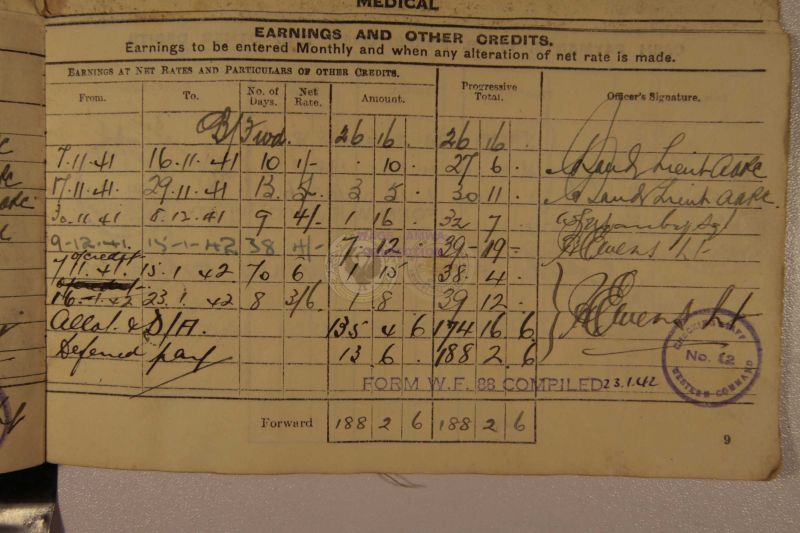 MEDICAL
EARNINGS AND OTHER CREDITS.
Earnings to be entered Monthly and when any alteration of net rate is made.
EARNINGS AT NET RATES AND PARTICULARS OF OTHER CREDITS.
From. To. No. of Days. Net Rate. Amount. Progressive Total. Officer's Signature.
B/Fwd. 26 16 . 26 16 .
7.11.41 16.11.41 10 1/- . 10 . 27 6 . Lieut AAPC
17.11.41 29.11.41 13 5/- 3 5 . 30 11 . Lieut AAPC.
30.11.41 8.12.41 9 4/- 1 16 . 32 7 .
9-12-41. 15-1-42 38 4/- 7. 12 . 39-19- Ewens Lt
credit
7.11.41. 15.1.42 70 6 1 15 . 38. 4 .
16.1.42 23.1.42 8 3/6 1 8 . 39 12 . Ewens Lt
Allot. & D/A. 135 4 6 174 16 6
Deferred pay 13 6 . 188 2 6
FORM W.F. 88 COMPILED 23.1.42
No. 12
WESTERN COMMAND
Forward 188 2 6 188 2 6
9